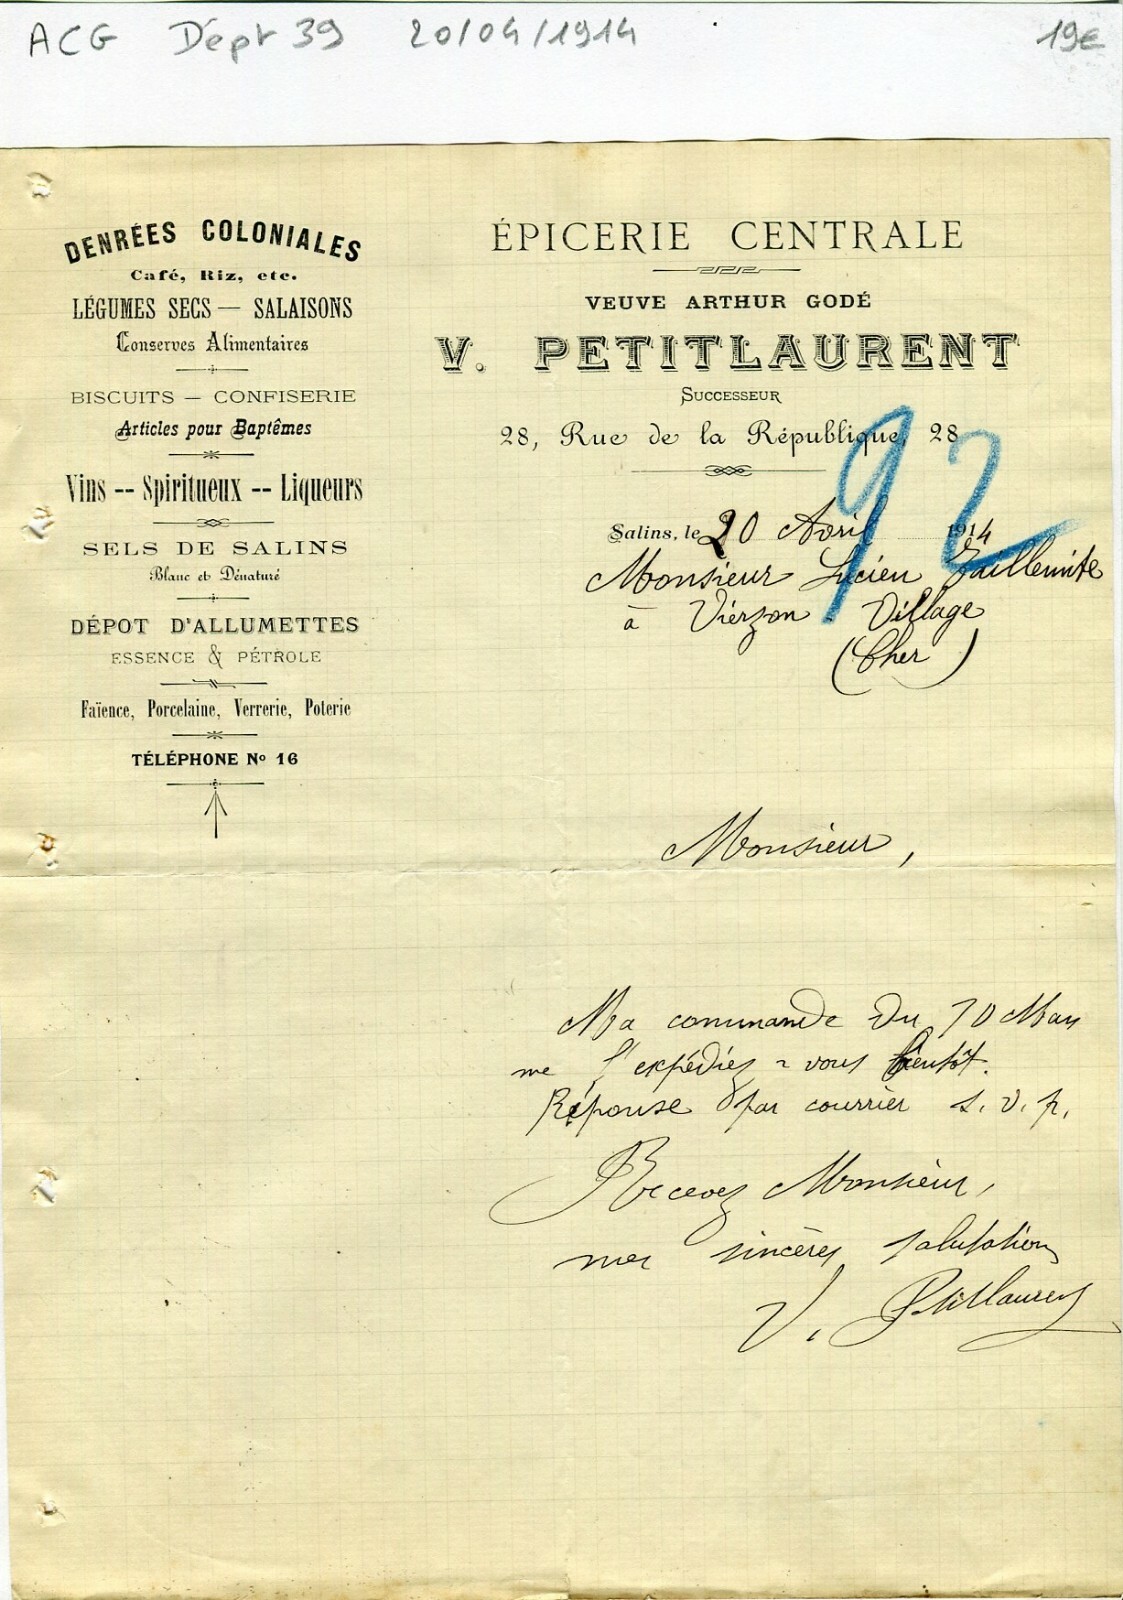 ACG Dépt 39 20/04/1914 19€
DENRÉES COLONIALES
Café, Riz, etc.
LÉGUMES SECS — SALAISONS
Conserves Alimentaires
BISCUITS — CONFISERIE
Articles pour Baptêmes
Vins -- Spiritueux -- Liqueurs
SELS DE SALINS
Blanc et Dénaturé
DÉPOT D'ALLUMETTES
ESSENCE & PÉTROLE
Faïence, Porcelaine, Verrerie, Poterie
TÉLÉPHONE No 16
ÉPICERIE CENTRALE
VEUVE ARTHUR GODÉ
V. PETITLAURENT
SUCCESSEUR
28, Rue de la République, 28
92
Salins, le 20 Avril 1914
Monsieur Lucien Taillemite
à Vierzon Village
(Cher)
Monsieur,
Ma commande du 10 Mars
me l'expédiez-vous bientôt.
Réponse par courrier s. v. p.
Recevez Monsieur,
mes sincères salutations
V. Petitlaurent